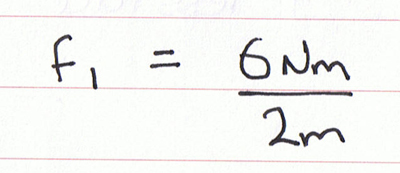 F₁ = 6Nm
2m